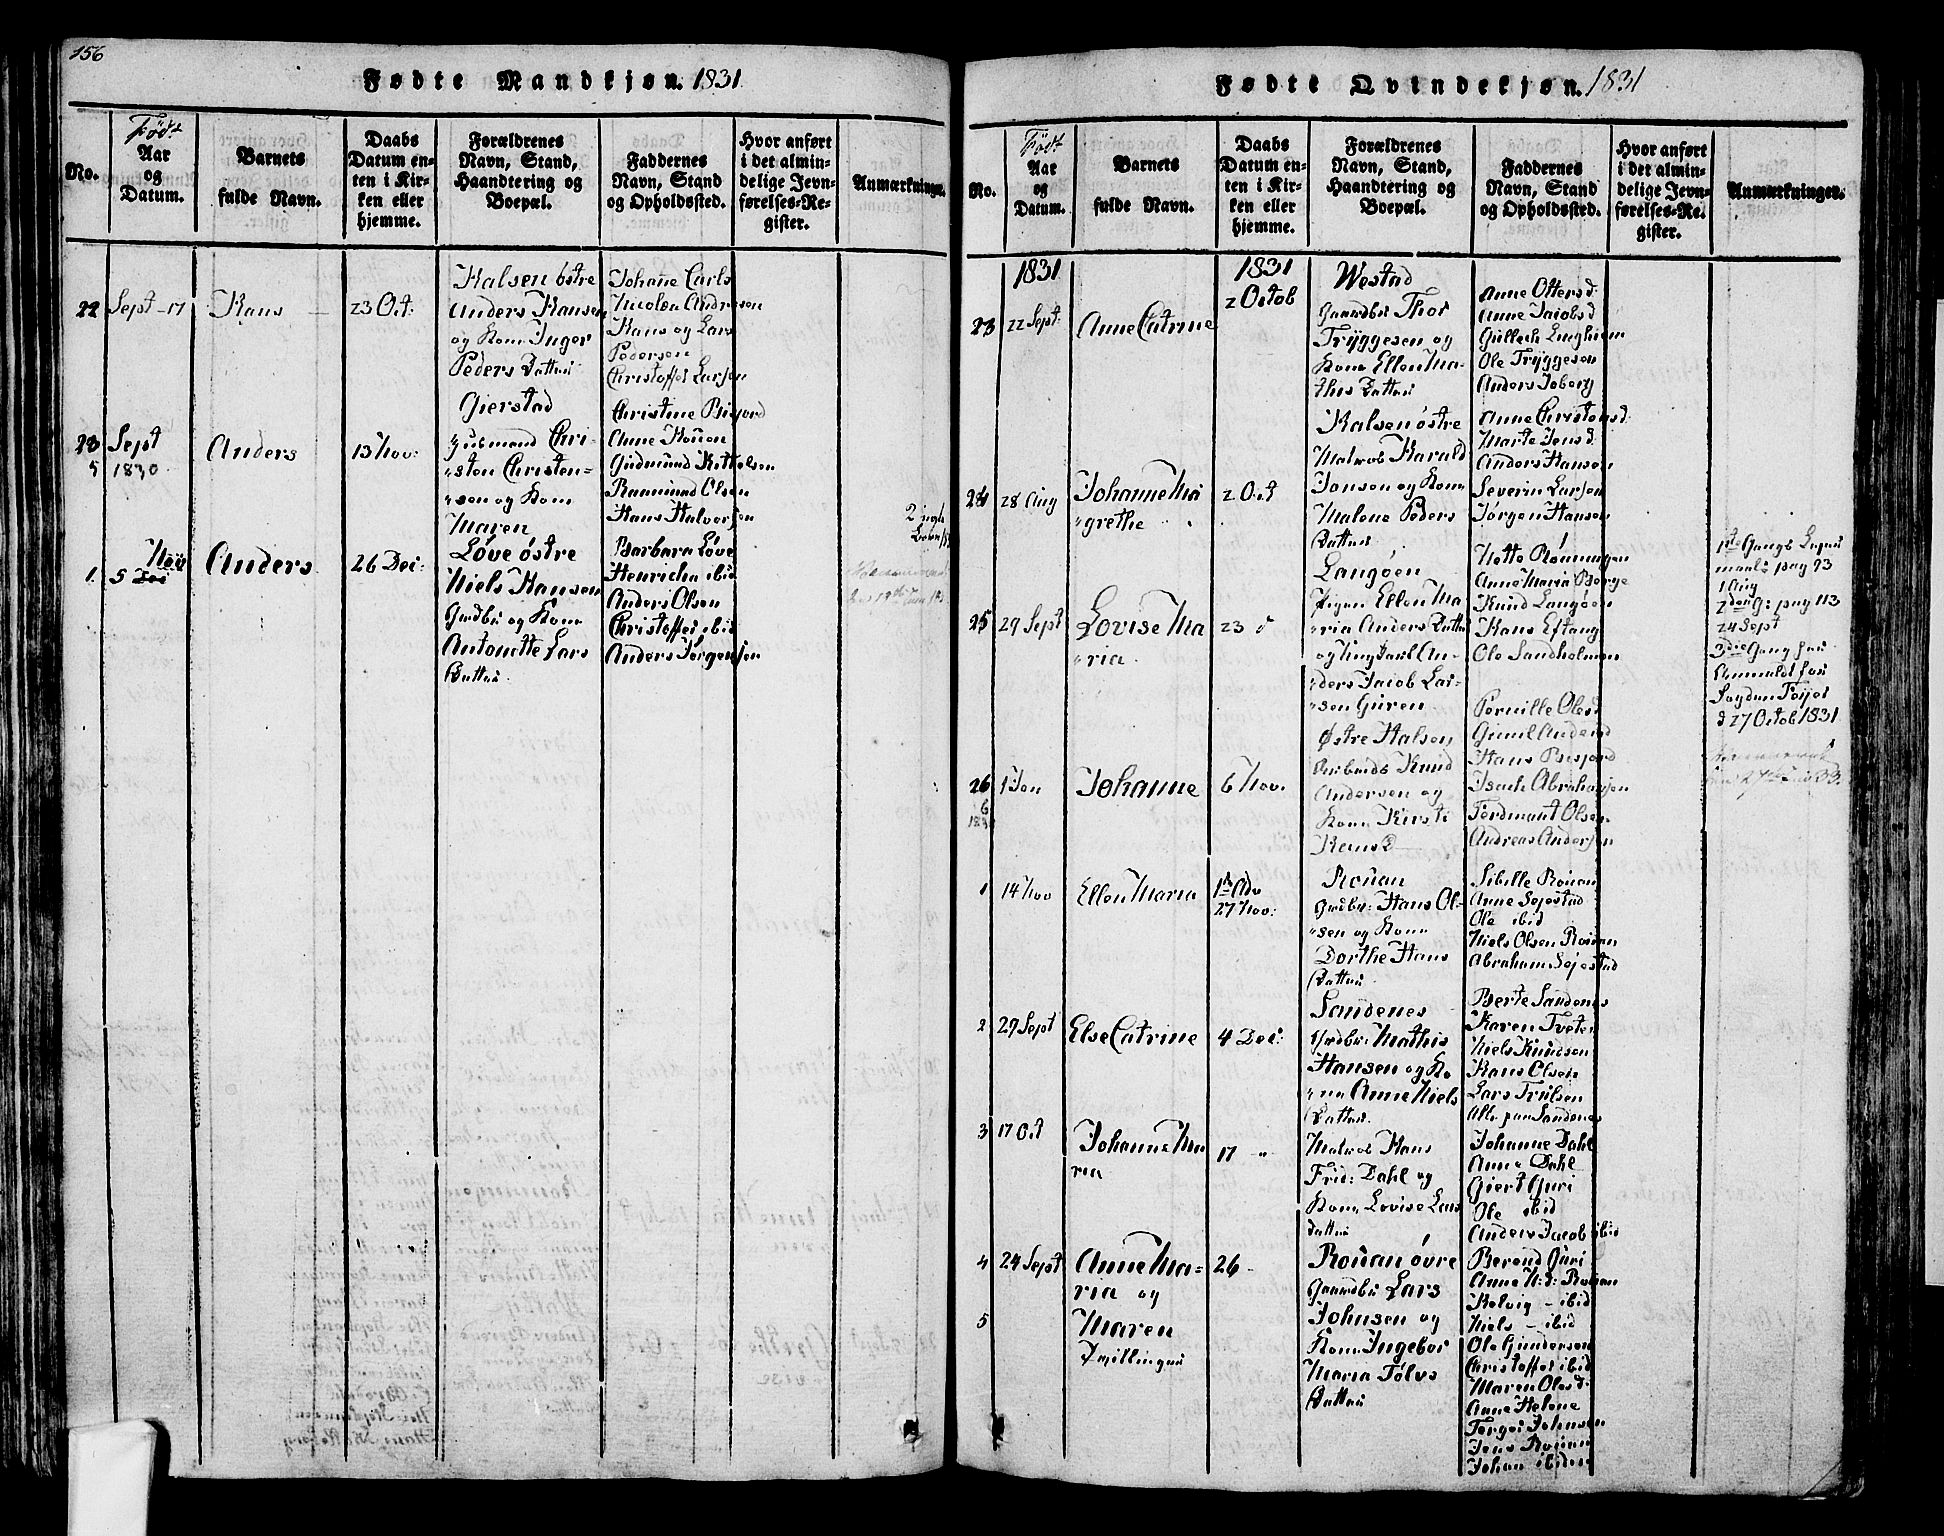 156
Fødte Mandkjøn. 1831
No.
Født
Aar
og
Datum.
Barnets
fulde Navn.
Daabs
Datum en-
ten i Kir-
ken eller
hjemme.
Forældrenes
Navn, Stand,
Haandtering og
Boepæl.
Faddernes
Navn, Stand
og Opholdssted.
Hvor anført
i det almin-
delige Jevn-
førelses-Re-
gister.
Anmærkninger.
22
Sept - 17
Hans
23 Oct:
Halsen østre
Anders Hansen
og Kone Inger
Peders Datter
Johane Carls
Nicolea Andresen
Hans og Lars
Pedersen
Christoffer Larsen
23
5
Sept
1830
Anders
13 Nov:
Gierstad
Huusmand Chri-
"sten Christen-
"sen og Kone
Maren
Christine Bisjord
Anne Rouen
Gudmund Kittelsen
Rasmund Olsen
Hans Halvorsen
1.
5 Nov
Anders
26 Dec:
Løve østre
Niels Hansen
Grdbr og Kone
Antonette Lars
Datter
Barbara Løve
Henricha ibid
Anders Olsen
Christoffer ibid
Anders Jørgensen
Fødte Qvindekjøn. 1831
No.
Født
Aar
og
Datum.
Barnets
fulde Navn.
Daabs
Datum en-
ten i Kir-
ken eller
hjemme.
Forældrenes
Navn, Stand,
Haandtering og
Boepæl.
Faddernes
Navn, Stand
og Opholdssted.
Hvor anført
i det almin-
delige Jevn-
førelses-Re-
gister.
Anmærkninger.
1831
1831
23
22 Sept:
Anne Catrine
2 Octob
Westad
Gaardbr Thor
Tryggesen og
Kone Ellen Ma-
this Datter
Anne Ottersd:
Anne Jacobsd
Gullech
Ole Tryggesen
Anders Joberg
24
28 Aug
Johanne Ma
"grethe
2 Oct
Halsen østre
Matros Harald
Jansen og Kone
Malene Peders
Datter
Anne Christensd
Marte Jensd
Anders Hansen
Severin Larsen
Jørgen Hansen
25
29 Sept
Lovise Ma
"ria.
23
Langøen
Pigen Ellen Ma
"ria Anders Datter
og Ungkarl An-
"ders Jacob Lar-
"sen Guren
Anne Maria Berge
Knud Langøen
Hans Eftang
Ole Sandholmen
1ste Gangs
pag 93
1 Aug
2den G: pag 113
24 Sept
3die Gang
d 27 Octob 1831
26
6
1 Jan
Johanne
6 Nov.
Østre Halsen
Knud
Andersen og
Kone Kirsti
Hans D
Pernille Olesd
Gunil
Hans Bisjord
Isach Abrahamsen
Ferdinant Olsen
Andreas Andersen
1
14 Nov
Ellen Maria
1ste Adv
27 Nov:
Rouan
Grdbr: Hans Ol-
"sen og Kone
Dorthe Hans
Datter
Sibille Rouan
Anne Sejestad
Ole ibid
Niels Olsen Rouan
Abraham Sejestad
2
29 Sept
Else Catrine
4 Dec:
Sandenes
Grdbr: Mathis
Hansen og Ko
"ne Anne Niels
Datter
Berte Sandenes
Karen Tveten
Niels Knudsen
Hans Olsen
Lars Trulsen
Alle paa Sandenes
3
17 Oct
Johanne Ma
ria
17 "
Matros Hans
Frid: Dahl og
Kone Lovise Lars
Datter
Johanne Dahl
Anne Dahl
Giert Guri
Ole ibid
Anders Jacob ibid
4
24 Sept
Anne Ma-
ria og
26 -
5
Maren
Tvillinger
Rouan øvre
Gaardbr Lars
Johnsen og
Kone Ingebor
Maria Tølvs
Datter
Berend Guri
Anne N: d: Rouan
Helvig - ibid
Niels - ibid
Ole Gundersen
Christoffer ibid
Maren Olesd:
Anne Helene
Torger Johnsen
Jens Rouan
Johan ibidem